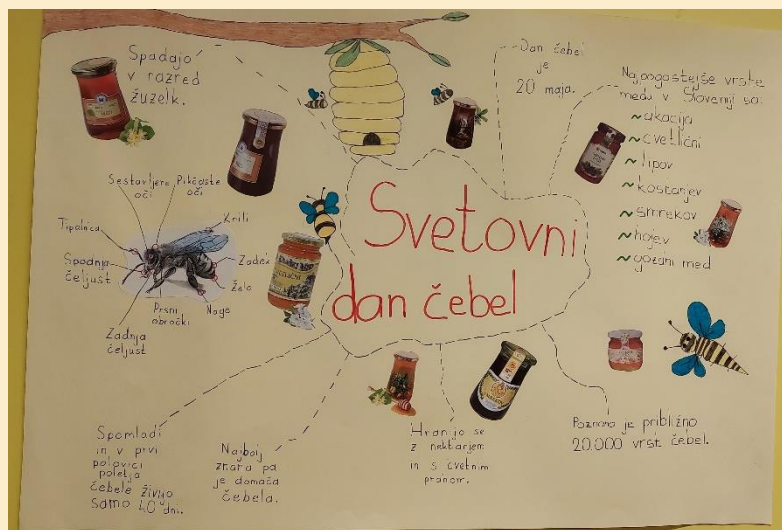 Spadajo
v razred
žuzelk.
Dan čebel
je
20 maja.
Najpogostejše vrste
medu v Sloveniji so:
~akacija
~cvetlični
~lipov
~kostanjev
~smrekov
~hojev
~gozdni med
Svetovni
dan čebel
Sestavljene
oči
Pikčaste
oči
Krili
Tipalnica
Zadek
Spodnja
čeljust
Želo
Prsni
obročki
Noge
Zadnja
čeljust
Spomladi
in v prvi
polovici
poletja
čebele živijo
samo 40 dni.
Najbolj
znana pa
je domača
čebela.
Hranijo se
z nektarjem
in s cvetnim
prahom.
Poznano je približno
20.000 vrst čebel.